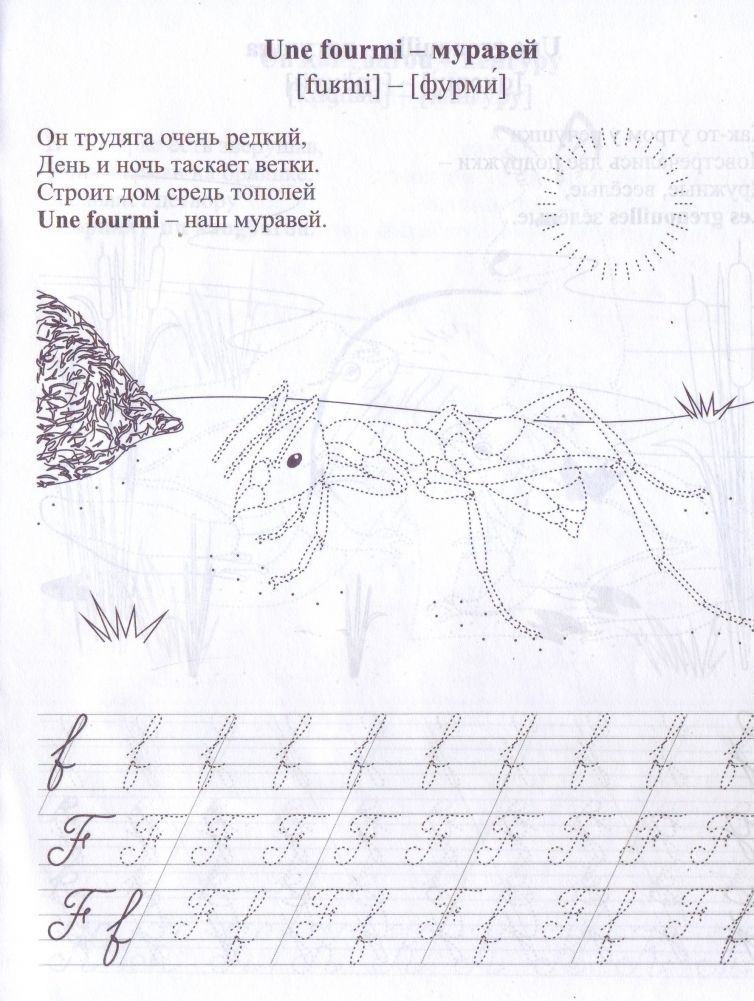 Une fourmi – муравей
[fuʁmi] – [фурми́]
Он трудяга очень редкий,
День и ночь таскает ветки.
Строит дом средь тополей
Une fourmi – наш муравей.
f f f f f f f f f
F F F F F F F F F
F f F f F f F f F f